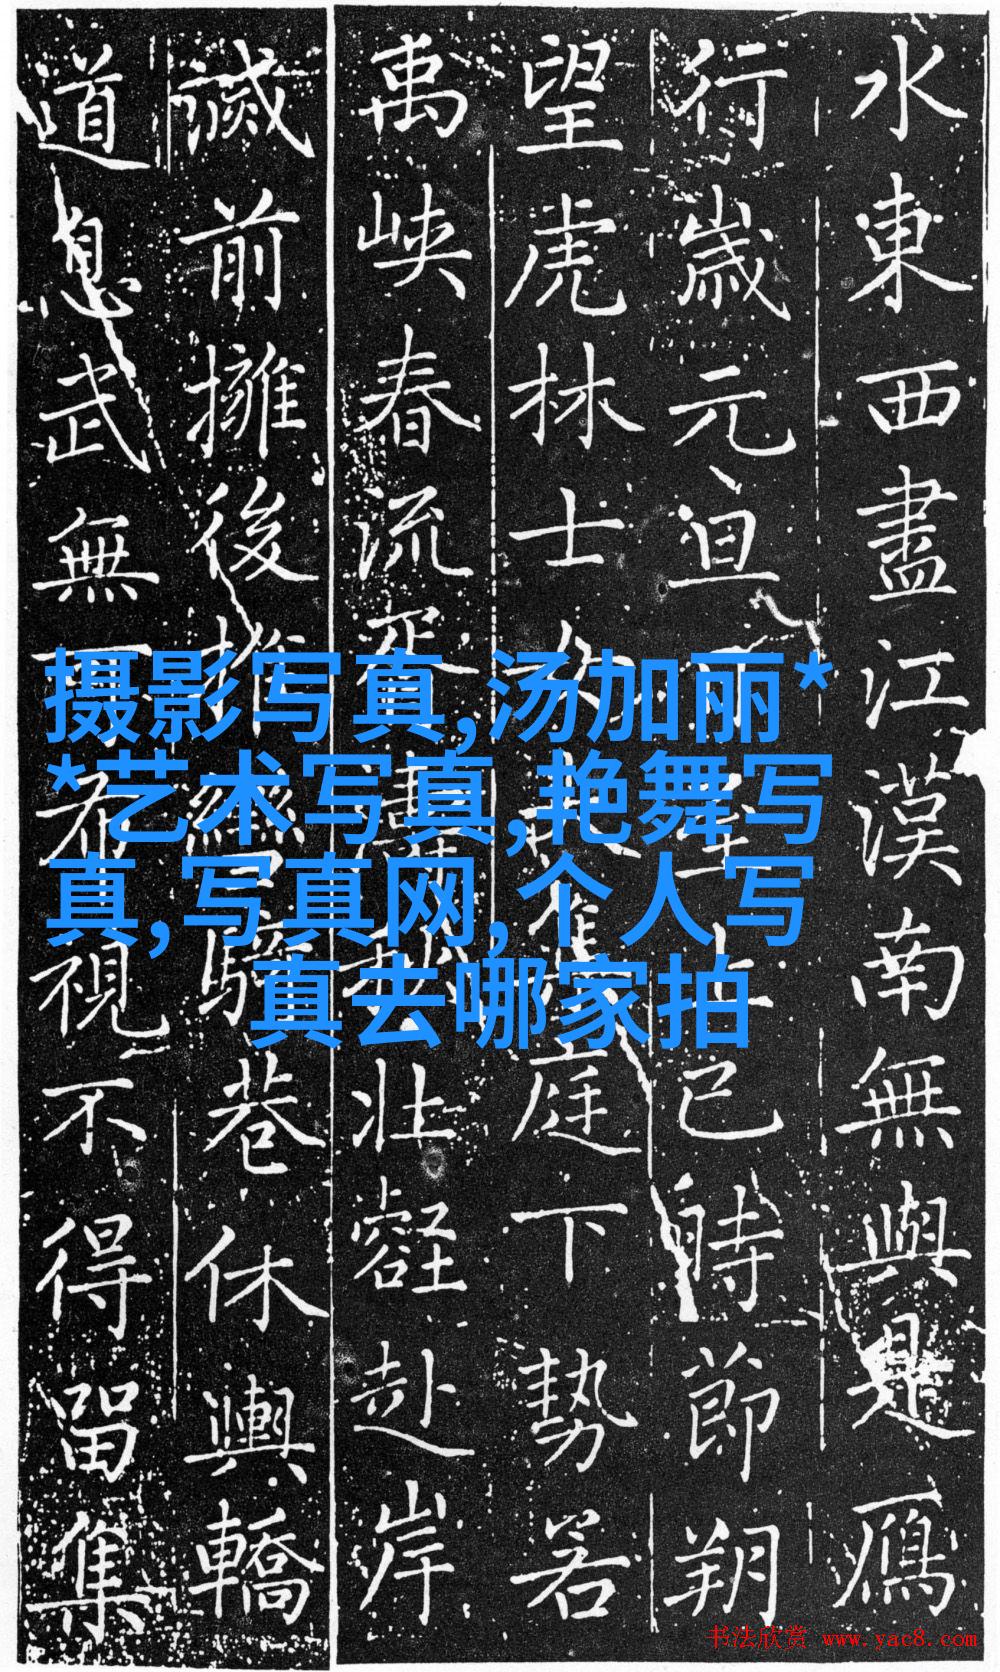 水東西盡江漢南無與是鴈
行歲元旦 已時節朔
望虎林士 庭下勢若
禹峽春流 壯壑赴岸
滅前擁後推 騎巷休輿轎
道息武無 視不得留集
摄影写真,汤加丽*
*艺术写真,艳舞写
真,写真网,个人写
真去哪家拍
书法欣赏 www.yac8.com